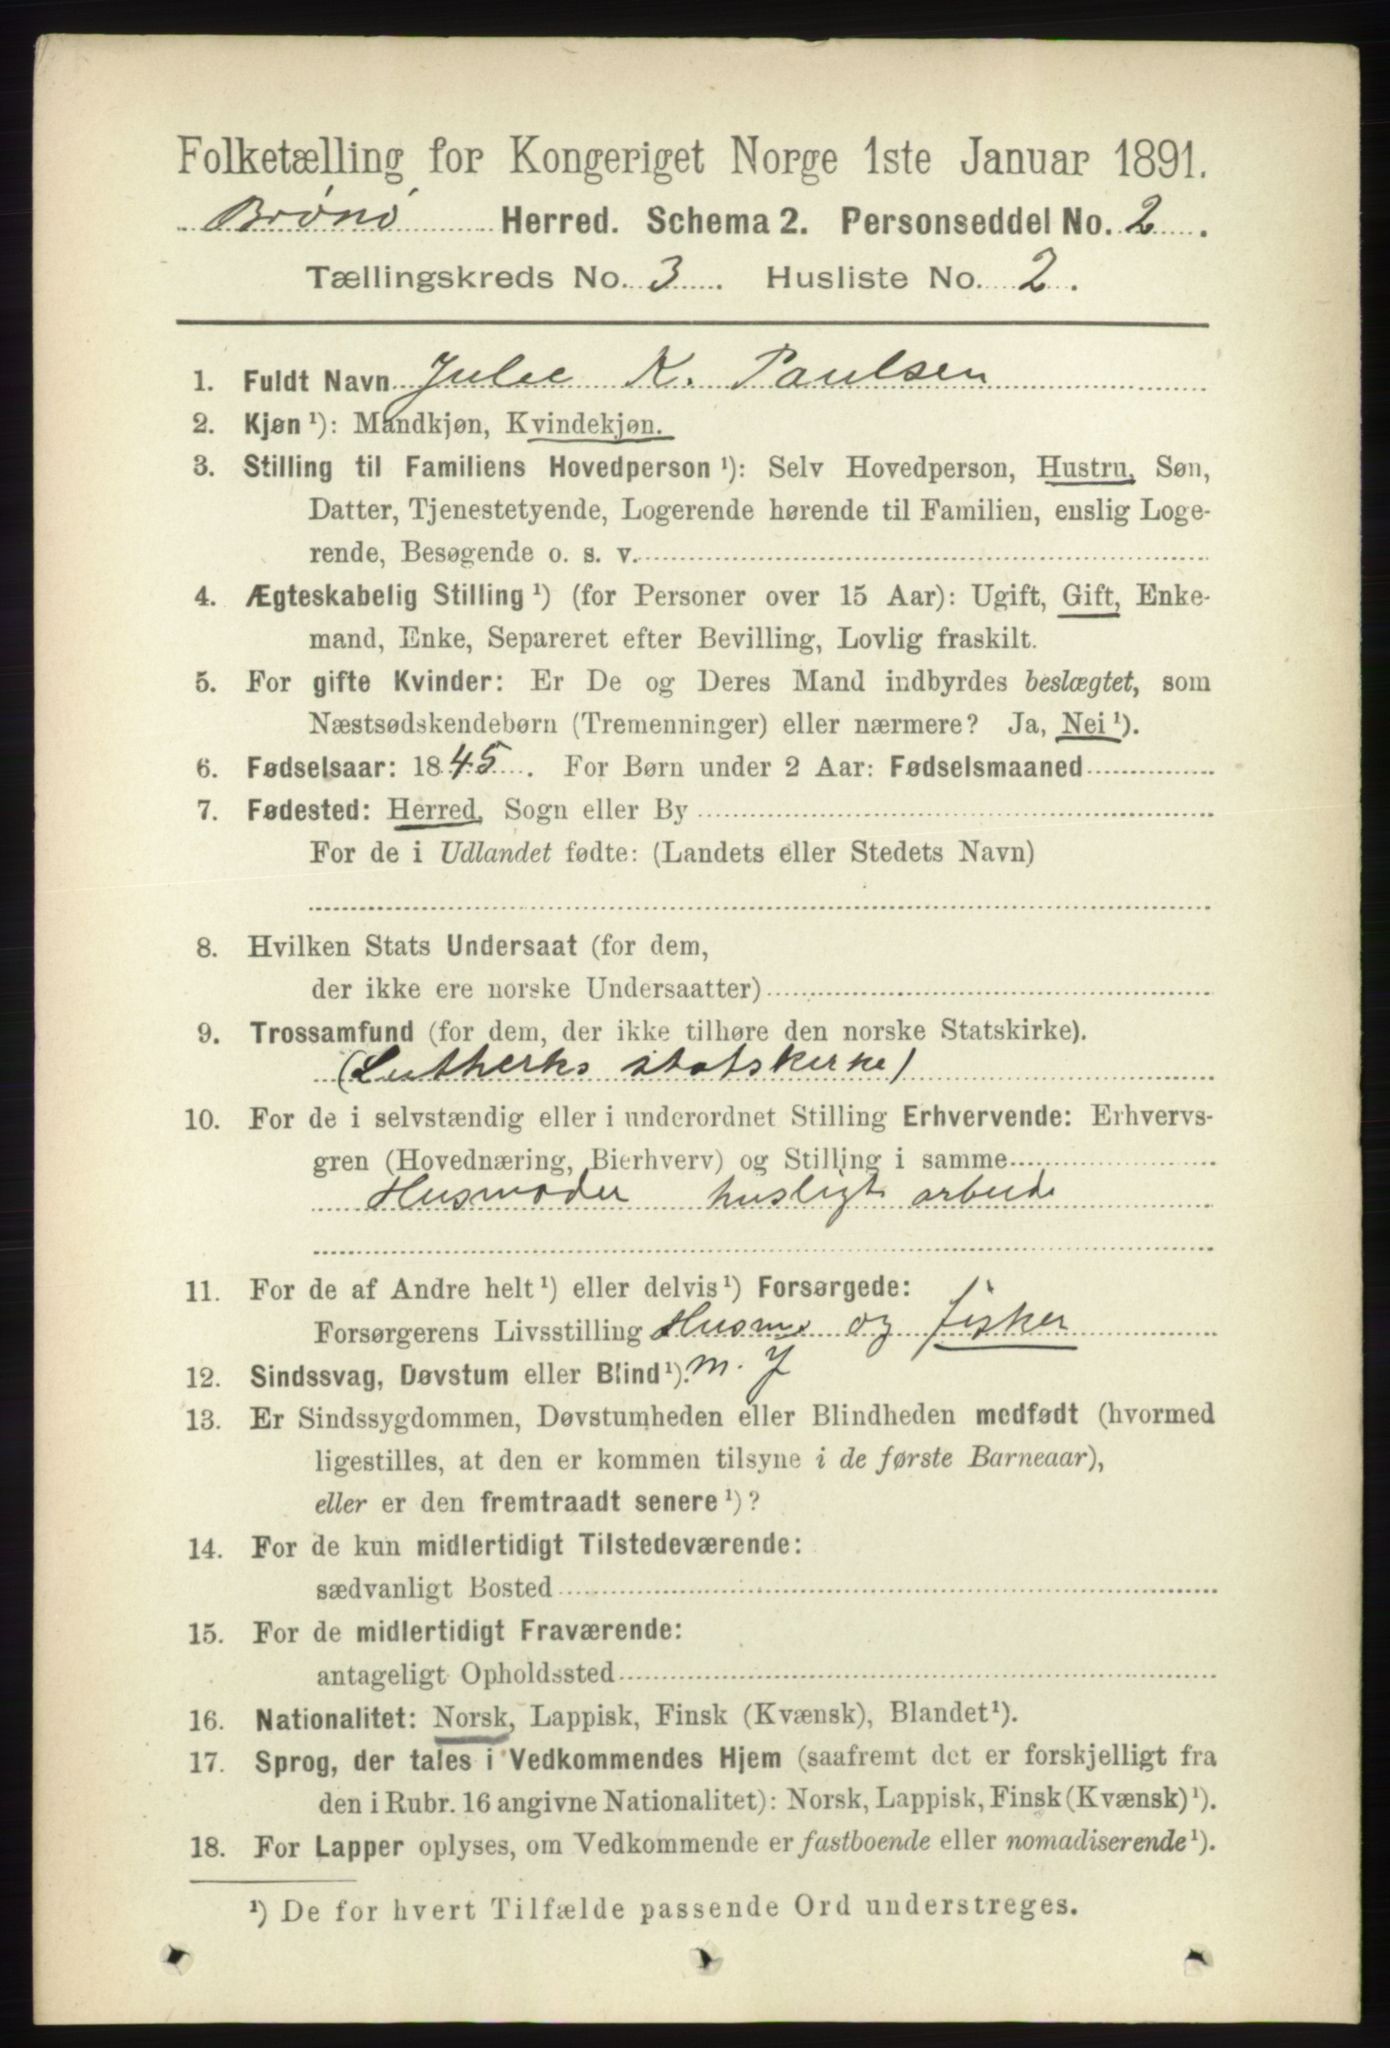 Folketælling for Kongeriget Norge 1ste Januar 1891.
Brønø Herred. Schema 2. Personseddel No. 2.
Tællingskreds No. 3. Husliste No. 2.
1. Fuldt Navn Julie K. Paulsen
2. Kjøn ¹): Mandkjøn, Kvindekjøn.
3. Stilling til Familiens Hovedperson ¹): Selv Hovedperson, Hustru, Søn,
Datter, Tjenestetyende, Logerende hørende til Familien, enslig Loge-
rende, Besøgende o. s. v.
4. Ægteskabelig Stilling ¹) (for Personer over 15 Aar): Ugift, Gift, Enke-
mand, Enke, Separeret efter Bevilling, Lovlig fraskilt.
5. For gifte Kvinder: Er De og Deres Mand indbyrdes beslægtet, som
Næstsødskendebørn (Tremenninger) eller nærmere? Ja, Nei ¹).
6. Fødselsaar: 1845. For Børn under 2 Aar: Fødselsmaaned
7. Fødested: Herred, Sogn eller By
For de i Udlandet fødte: (Landets eller Stedets Navn)
8. Hvilken Stats Undersaat (for dem,
der ikke ere norske Undersaatter)
9. Trossamfund (for dem, der ikke tilhøre den norske Statskirke).
(Lutherks statskirke)
10. For de i selvstændig eller i underordnet Stilling Erhvervende: Erhvervs-
gren (Hovednæring, Bierhverv) og Stilling i samme
Husmoder husligt arbeide
11. For de af Andre helt ¹) eller delvis ¹) Forsørgede:
Forsørgerens Livsstilling Husm. og fisker
12. Sindssvag, Døvstum eller Blind ¹). m. J
13. Er Sindssygdommen, Døvstumheden eller Blindheden medfødt (hvormed
ligestilles, at den er kommen tilsyne i de første Barneaar),
eller er den fremtraadt senere ¹)?
14. For de kun midlertidigt Tilstedeværende:
sædvanligt Bosted
15. For de midlertidigt Fraværende:
antageligt Opholdssted
16. Nationalitet: Norsk, Lappisk, Finsk (Kvænsk), Blandet ¹).
17. Sprog, der tales i Vedkommendes Hjem (saafremt det er forskjelligt fra
den i Rubr. 16 angivne Nationalitet): Norsk, Lappisk, Finsk (Kvænsk) ¹).
18. For Lapper oplyses, om Vedkommende er fastboende eller nomadiserende ¹).
¹) De for hvert Tilfælde passende Ord understreges.